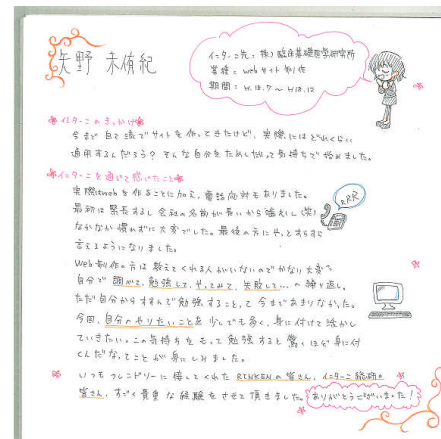 矢野 未侑紀
インターン先: 株)臨床基礎医学研究所
業種 = webサイト制作
期間 = H.18.9 〜 H18.12
インターンのきっかけ
今まで自己流でサイトを作ってきたけど、実際にはどれくらい
通用するんだろう? そんな自分をためしたいって気持ちで始めました。
インターンを通じて感じたこと
実際はwebを作ることに加え、電話応対もありました。
最初は緊張するし会社の名前が長いから噛えし(笑)
なかなか慣れずに大変でした。最後の方にやっとすらすら
言えるようになりました。
RRR
Web制作の方は教えてくれる人がいないのでかなり大変。
自分で調べて、勉強して、やってみて、失敗して…の繰り返し。
ただ自分からすすんで勉強することって今まであまりなかった。
今回、自分のやりたいことを少しでも多く、身に付けて活かし
ていきたい。この気持ちをもって勉強すると驚くほど身に付
くんだなってことが身にしみました。
いつもフレンドリーに接してくれたRINKENの皆さん、インターン総研の
皆さん、すごく貴重な経験をさせて頂きました。ありがとうございました!